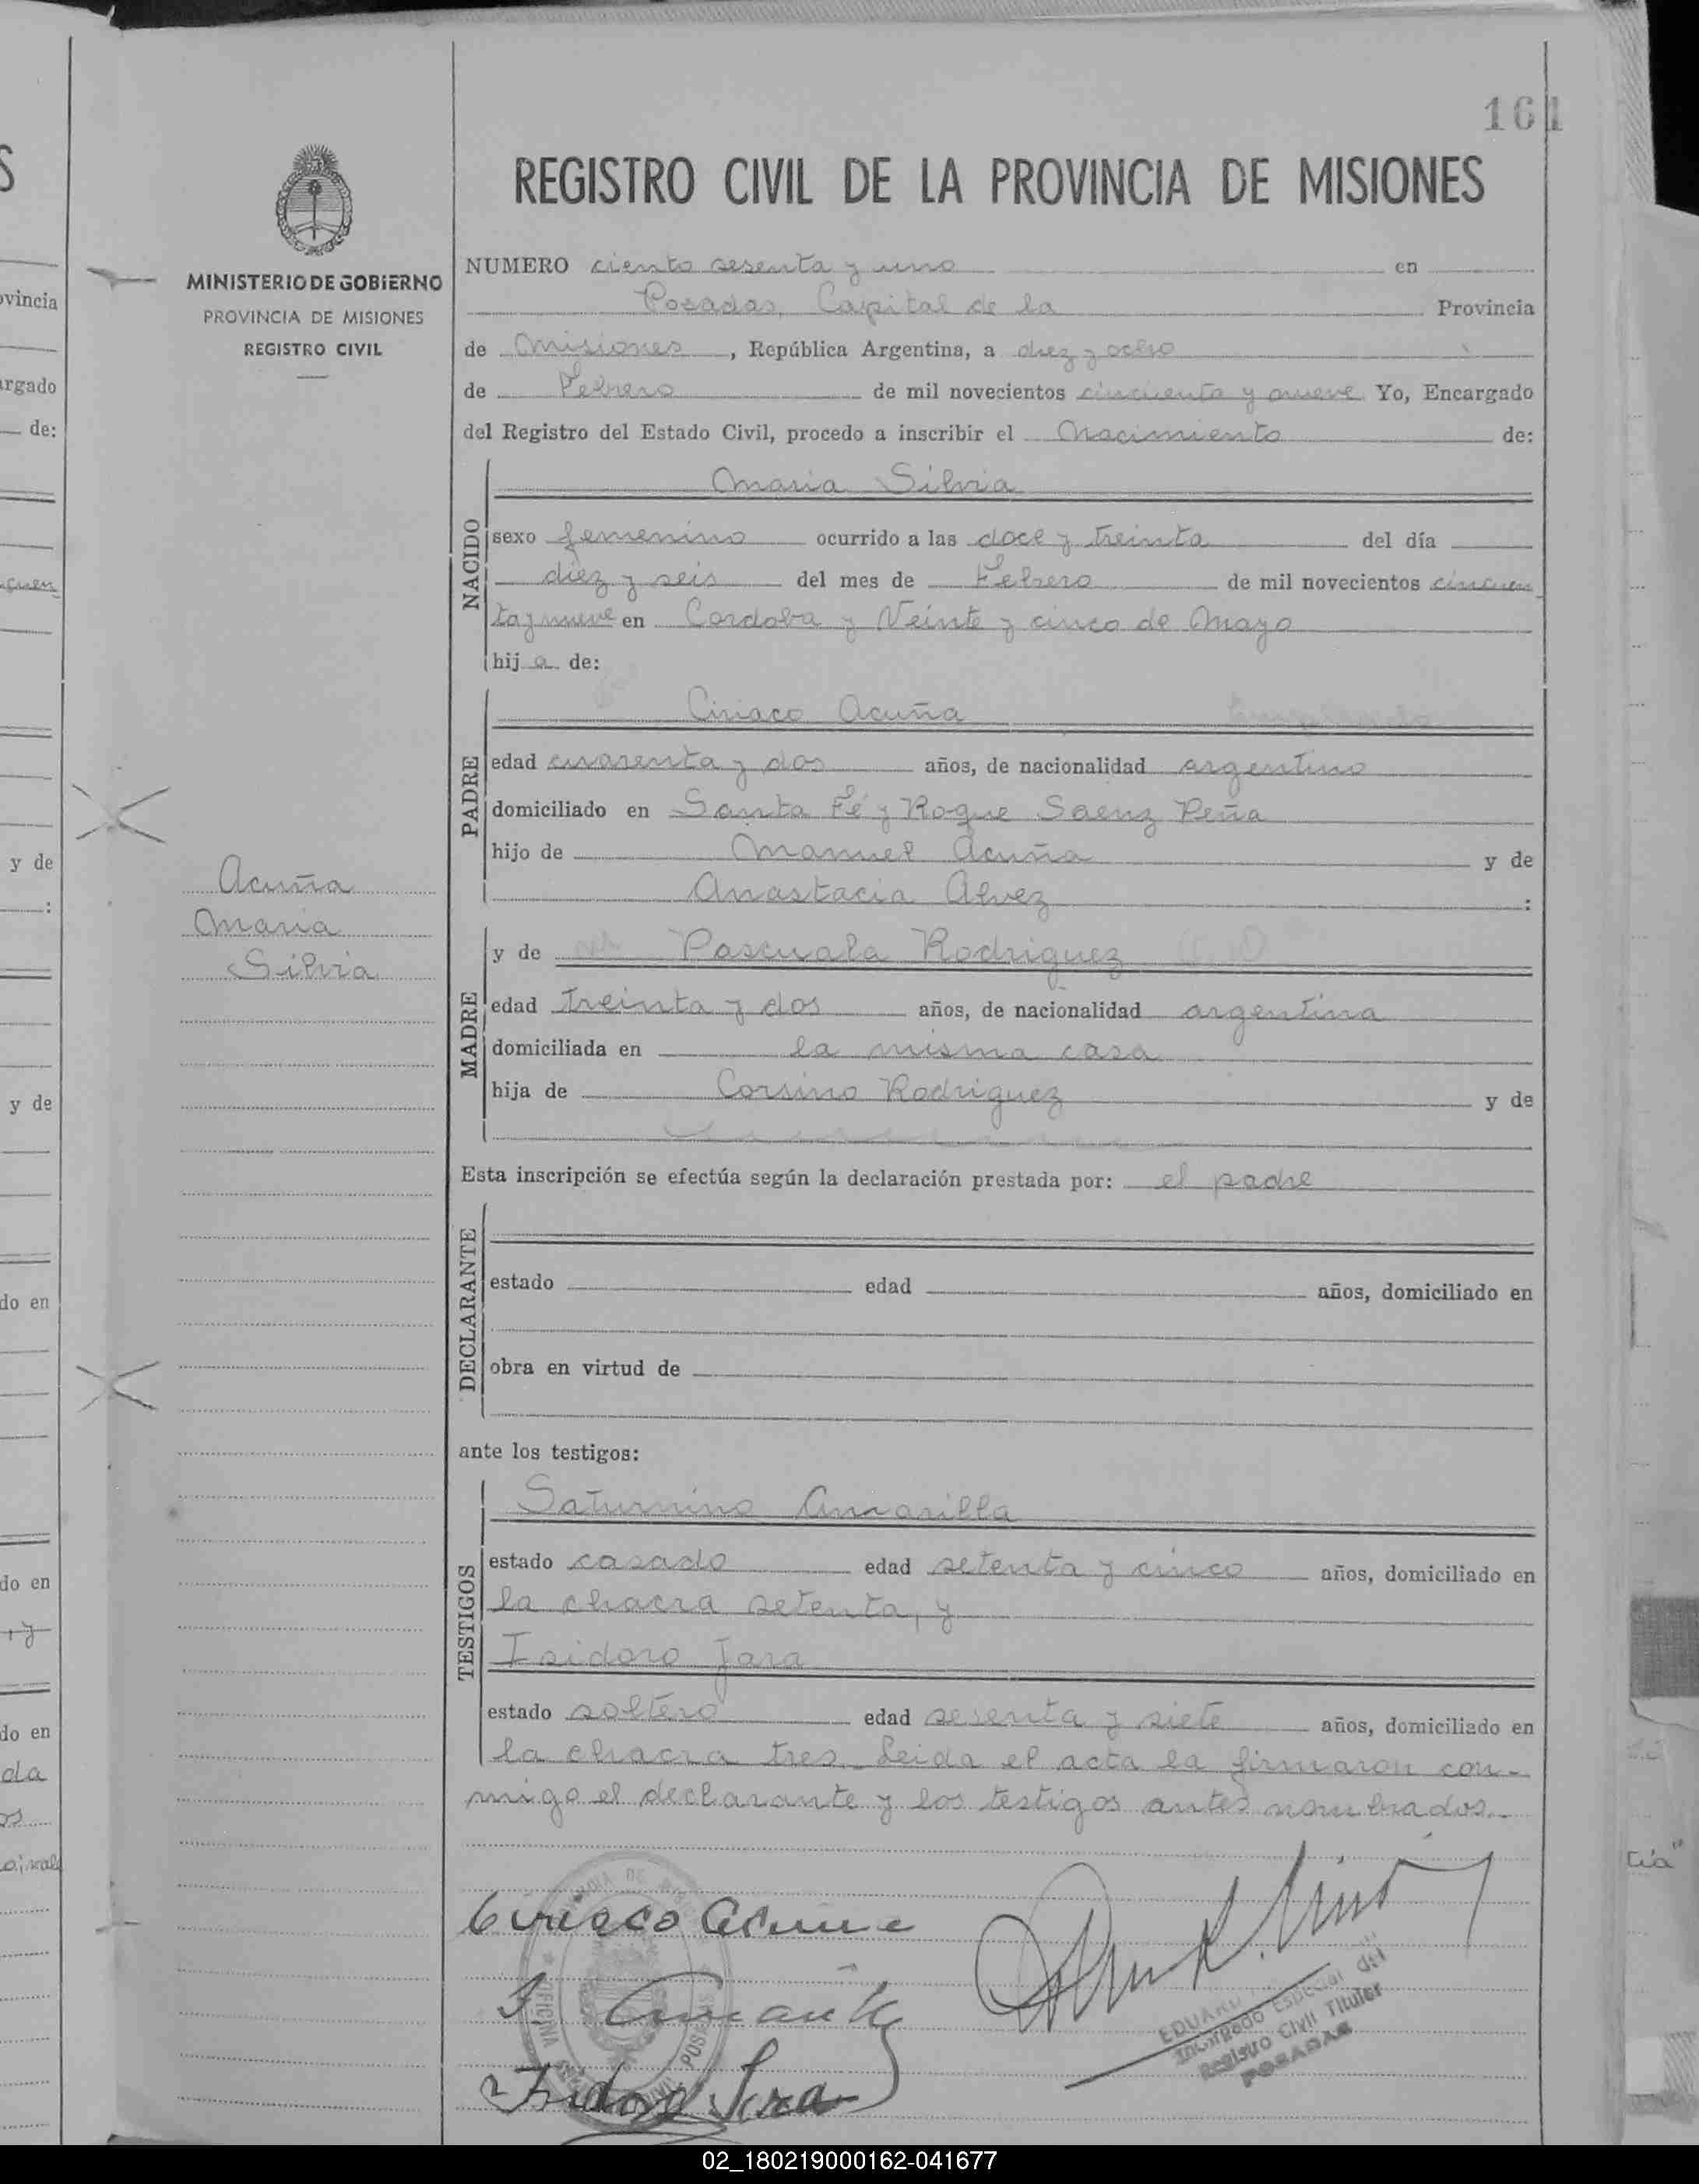 161
REGISTRO CIVIL DE LA PROVINCIA DE MISIONES
MINISTERIO DE GOBIERNO
PROVINCIA DE MISIONES
REGISTRO CIVIL
NUMERO ciento sesenta y uno en
Posadas, Capital de la Provincia
de Misiones, República Argentina, a diez y ocho
de Febrero de mil novecientos cincuenta y nueve Yo, Encargado
del Registro del Estado Civil, procedo a inscribir el Nacimiento de:
NACIDO
Maria Silvia
sexo femenino ocurrido a las doce y treinta del día
diez y seis del mes de Febrero de mil novecientos cincuen
ta y nueve en Cordoba y Veinte y cinco de Mayo
hij a de:
PADRE
Ciriaco Acuña
edad cuarenta y dos años, de nacionalidad argentino
domiciliado en Santa Fé y Roque Saenz Peña
hijo de Manuel Acuña y de
Anastacia Alvez :
Acuña
Maria
Silvia
MADRE
y de Pascuala Rodriguez
edad treinta y dos años, de nacionalidad argentina
domiciliada en la misma casa
hija de Corsino Rodriguez y de
Esta inscripción se efectúa según la declaración prestada por: el padre
DECLARANTE
estado edad años, domiciliado en
obra en virtud de
ante los testigos:
TESTIGOS
Saturnino Amarilla
estado casado edad setenta y cinco años, domiciliado en
la chacra setenta, y
Isidoro Jara
estado soltero edad sesenta y siete años, domiciliado en
la chacra tres. Leida el acta la firmaron con-
migo el declarante y los testigos antes nombrados.
Ciriaco Acuña
Isidoro Jara
Encargado Especial del
Registro Civil Titular
POSADAS
02_180219000162-041677